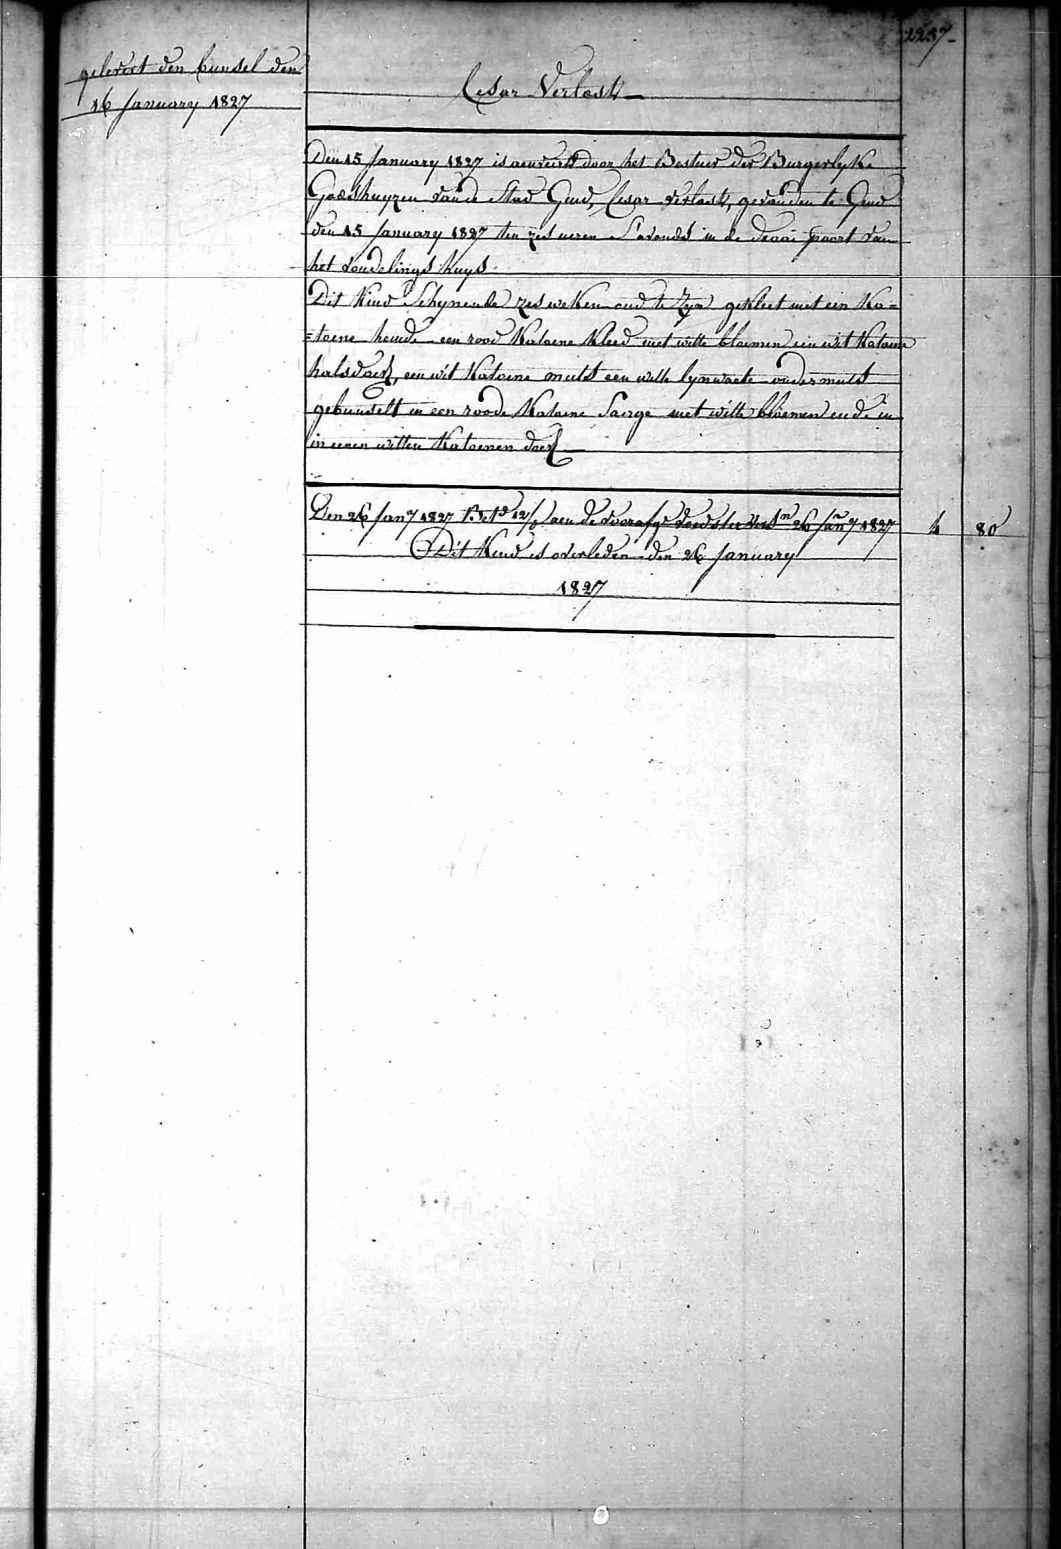 2257
gelevert den bunsel den
16 January 1827
Cesar Verlost
Den 15 January 1827 is aenveird door het Bestuer der Burgerlyke
Godshuyzen van de Stad Gend, Cesar verlost, gevonden te Gend
den 15 January 1827 ten zes ueren S'avonds in de draai poort van
het vondelings huys.
Dit Kind Schynende zes weken oud te zyn gekleet met een Ka=
=toene hemde een rood Katoene Kleed met witte bloemen een wit Katoene
halsdoek, een wit Katoene muts een witte lynwaete onder muts
gebunselt in een roode Katoene Sairge met witte bloemen ende in
in eenen witten Katoenen doek
Den 26 Jany 1827 aen de voorafge voedster 26 Jany 1827 4 80
Dit Kind is overleden den 26 January
1827